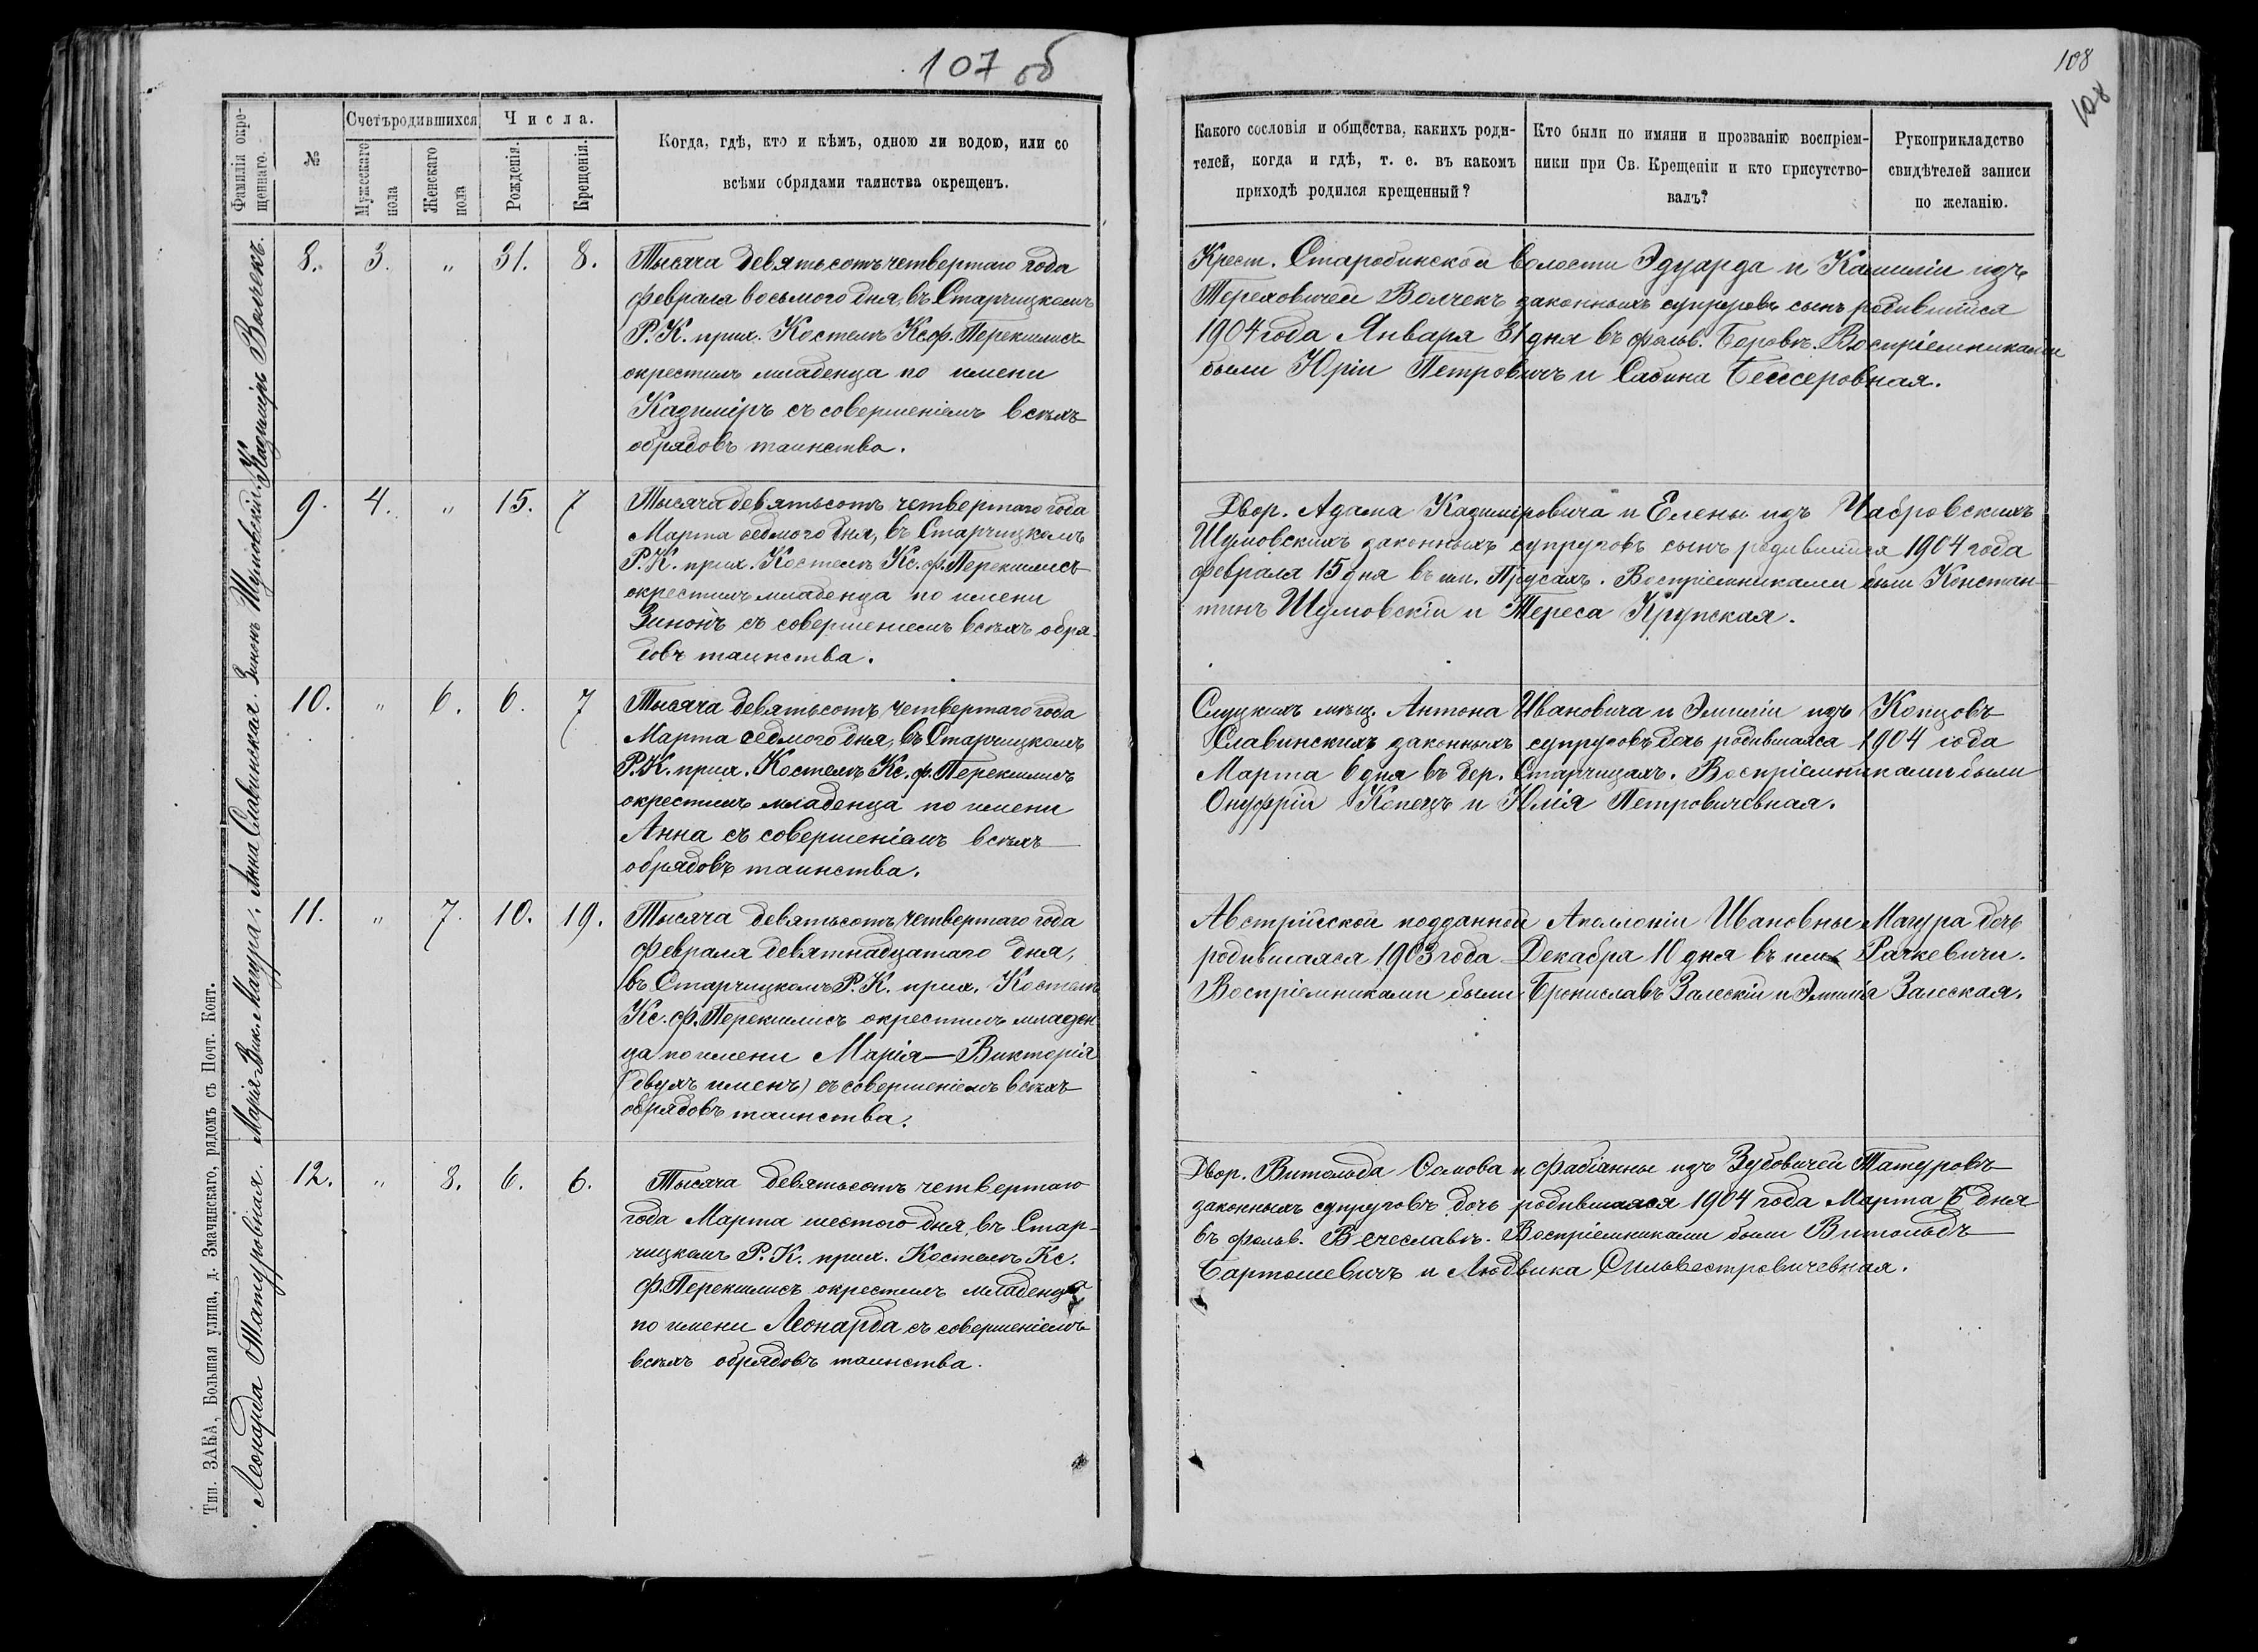 107 об
Фамилія окре-
щеннаго.
№
Счетъ родившихся
Мужескаго
пола
Женскаго
пола
Числа.
Рожденія.
Крещенія.
Когда, гдѣ, кто и кѣмъ, одною ли водою, или со
всѣми обрядами таинства окрещенъ.
Казиміръ Волчекъ.
8. 3. „ 31. 8.
Тысяча девятьсотъ четвертаго года
февраля восьмого дня, въ Старчицкомъ
Р. К. прих. Костелѣ Кс. ф. Перекшлисъ
окрестилъ младенца по имени
Казиміръ съ совершеніемъ всѣхъ
обрядовъ таинства.
Зинонъ Шумовскій.
9. 4. „ 15. 7
Тысяча девятьсотъ четвертаго года
Марта седмого дня, въ Старчицкомъ
Р. К. прих. Костелѣ Кс. ф. Перекшлисъ
окрестилъ младенца по имени
Зинонъ съ совершеніемъ всѣхъ обря-
довъ таинства.
Анна Славинская.
10. „ 6. 6. 7
Тысяча девятьсотъ четвертаго года
Марта седмого дня, въ Старчицкомъ
Р. К. прих. Костелѣ Кс. ф. Перекшлисъ
окрестилъ младенца по имени
Анна съ совершеніемъ всѣхъ
обрядовъ таинства.
Марія-Вик. Магура.
11. „ 7. 10. 19.
Тысяча девятьсотъ четвертаго года
Февраля девятнадцатаго дня,
въ Старчицкомъ Р. К. прих. Костелѣ
Кс. ф. Перекшлисъ окрестилъ младен-
ца по имени Марія—Викторія
(двухъ именъ) съ совершеніемъ всѣхъ
обрядовъ таинства.
Леонарда Татуровная.
12. „ 8. 6. 6.
Тысяча девятьсотъ четвертаго
года Марта шестого дня, въ Стар-
чицкомъ Р. К. прих. Костелѣ Кс.
ф. Перекшлисъ окрестилъ младенца
по имени Леонарда съ совершеніемъ
всѣхъ обрядовъ таинства.
Тип. ЗАКА, Большая улица, д. Змачинскаго, рядомъ съ Почт. Конт.
108
108
Какого сословія и общества, какихъ роди-
телей, когда и гдѣ, т. е. въ какомъ
приходѣ родился крещенный?
Кто были по имяни и прозванію воспріем-
ники при Св. Крещеніи и кто присутство-
валъ?
Рукоприкладство
свидѣтелей записи
по желанію.
Крест. Старобинской волости Эдуарда и Камиліи изъ
Тереховичей Волчекъ законныхъ супруговъ сынъ родившійся
1904 года Января 31 дня въ фольв. Боровъ. Воспріемниками
были Юрій Петровичъ и Сабина Бейсеровная.
Двор. Адама Казиміровича и Елены изъ Чабровскихъ
Шумовскихъ законныхъ супруговъ сынъ родившійся 1904 года
февраля 15 дня въ им. Прусахъ. Воспріемниками были Констан-
тинъ Шумовскій и Тереса Крупская.
Слуцкихъ мѣщ. Антона Ивановича и Эмиліи изъ Копцовъ
Славинскихъ законныхъ супруговъ дочь родившаяся 1904 года
Марта 6 дня въ дер. Старчицахъ. Воспріемниками были
Онуфрій Копецъ и Юлія Петровичевная.
Австрійской подданной Аполлоніи Ивановны Магура дочь
родившаяся 1903 года Декабря 10 дня въ им. Рачкевичи.
Воспріемниками были Брониславъ Залескій и Эмилія Залеская.
Двор. Витольда Осипова и Фабіанны изъ Зубовичей Татуровъ
законныхъ супруговъ дочь родившаяся 1904 года Марта 6 дня
въ фольв. Вечеславѣ. Воспріемниками были Витольдъ
Бартошевичъ и Людвика Сильвестровичевная.